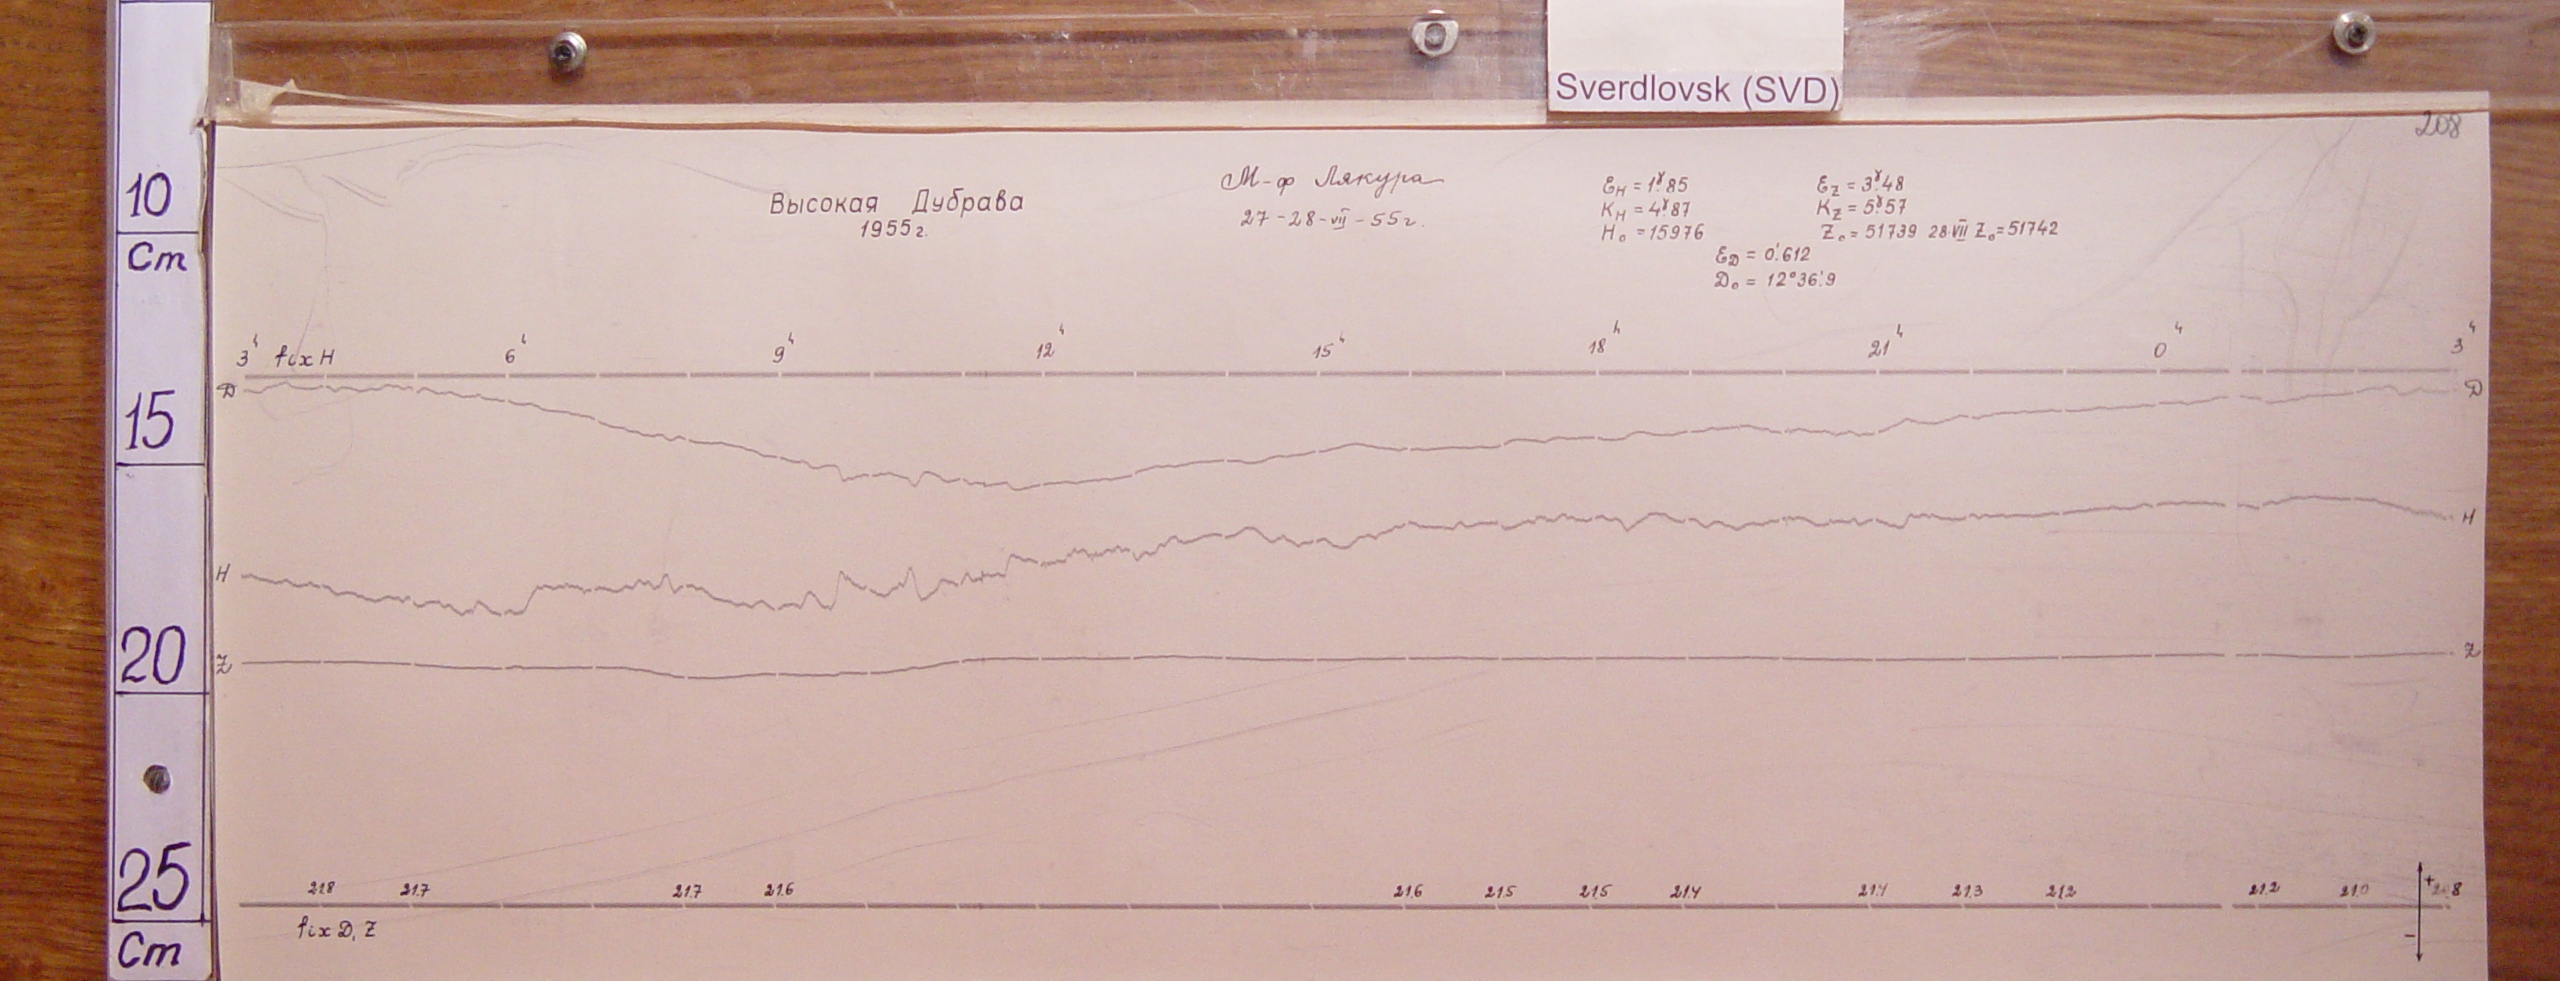 Sverdlovsk (SVD)
208
10
Cm
15
20
25
Cm
Высокая Дубрава
1955г.
М-ф Лякура
27-28-VII-55г.
ℰH = 1ᵞ.85
KH = 4ᵞ.87
H₀ = 15976
ℰZ = 3ᵞ.48
KZ = 5ᵞ.57
Z₀ = 51739 28 VII Z₀ = 51742
ℰD = 0'.612
D₀ = 12°36'.9
3ʰ fix H 6ʰ 9ʰ 12ʰ 15ʰ 18ʰ 21ʰ 0ʰ 3ʰ
D D
H H
Z Z
21.8 21.7 21.7 21.6 21.6 21.5 21.5 21.4 21.4 21.3 21.2 21.2 21.0
+
fix D, Z
-